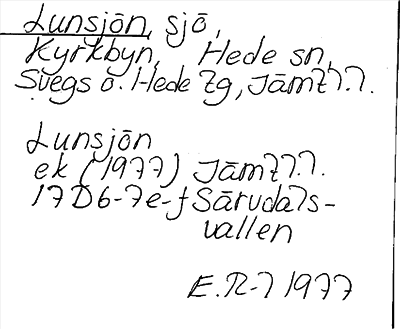 Lunsjön, sjö,
Kyrkbyn, Hede sn,
Svegs o. Hede tg, Jämtl.
Lunsjön
ek (1977) Jämtl.
17D6-7e-f Särvdals-
vallen
E.R-l 1977